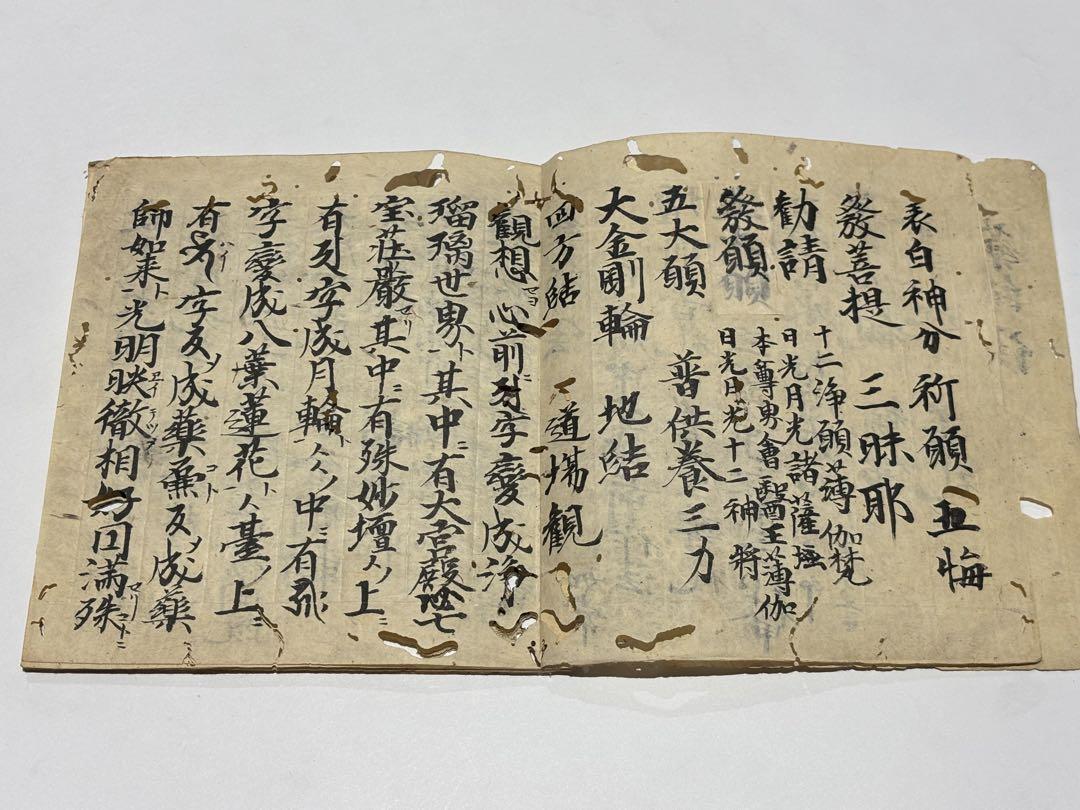 表白神分 祈願 五悔
發菩提 三昧耶
勸請 十二浄願薄伽梵
日光月光諸薩埵
發願 本尊界會醫王薄伽
日光月光十二神將
五大願 普供養三力
大金剛輪 地結
四方結 道場觀
觀想 心前 字變成浄
瑠璃世界ト其中ニ有大宮殿 七
宝莊嚴セリ其中ニ有殊妙壇 上ニ
有 字成月輪ト 中ニ有
字變成八葉蓮花ト 臺ノ上ニ
有 字バイ 字反ノ成藥 反ノ成藥
師如来ト光明映徹相好円満セリ殊